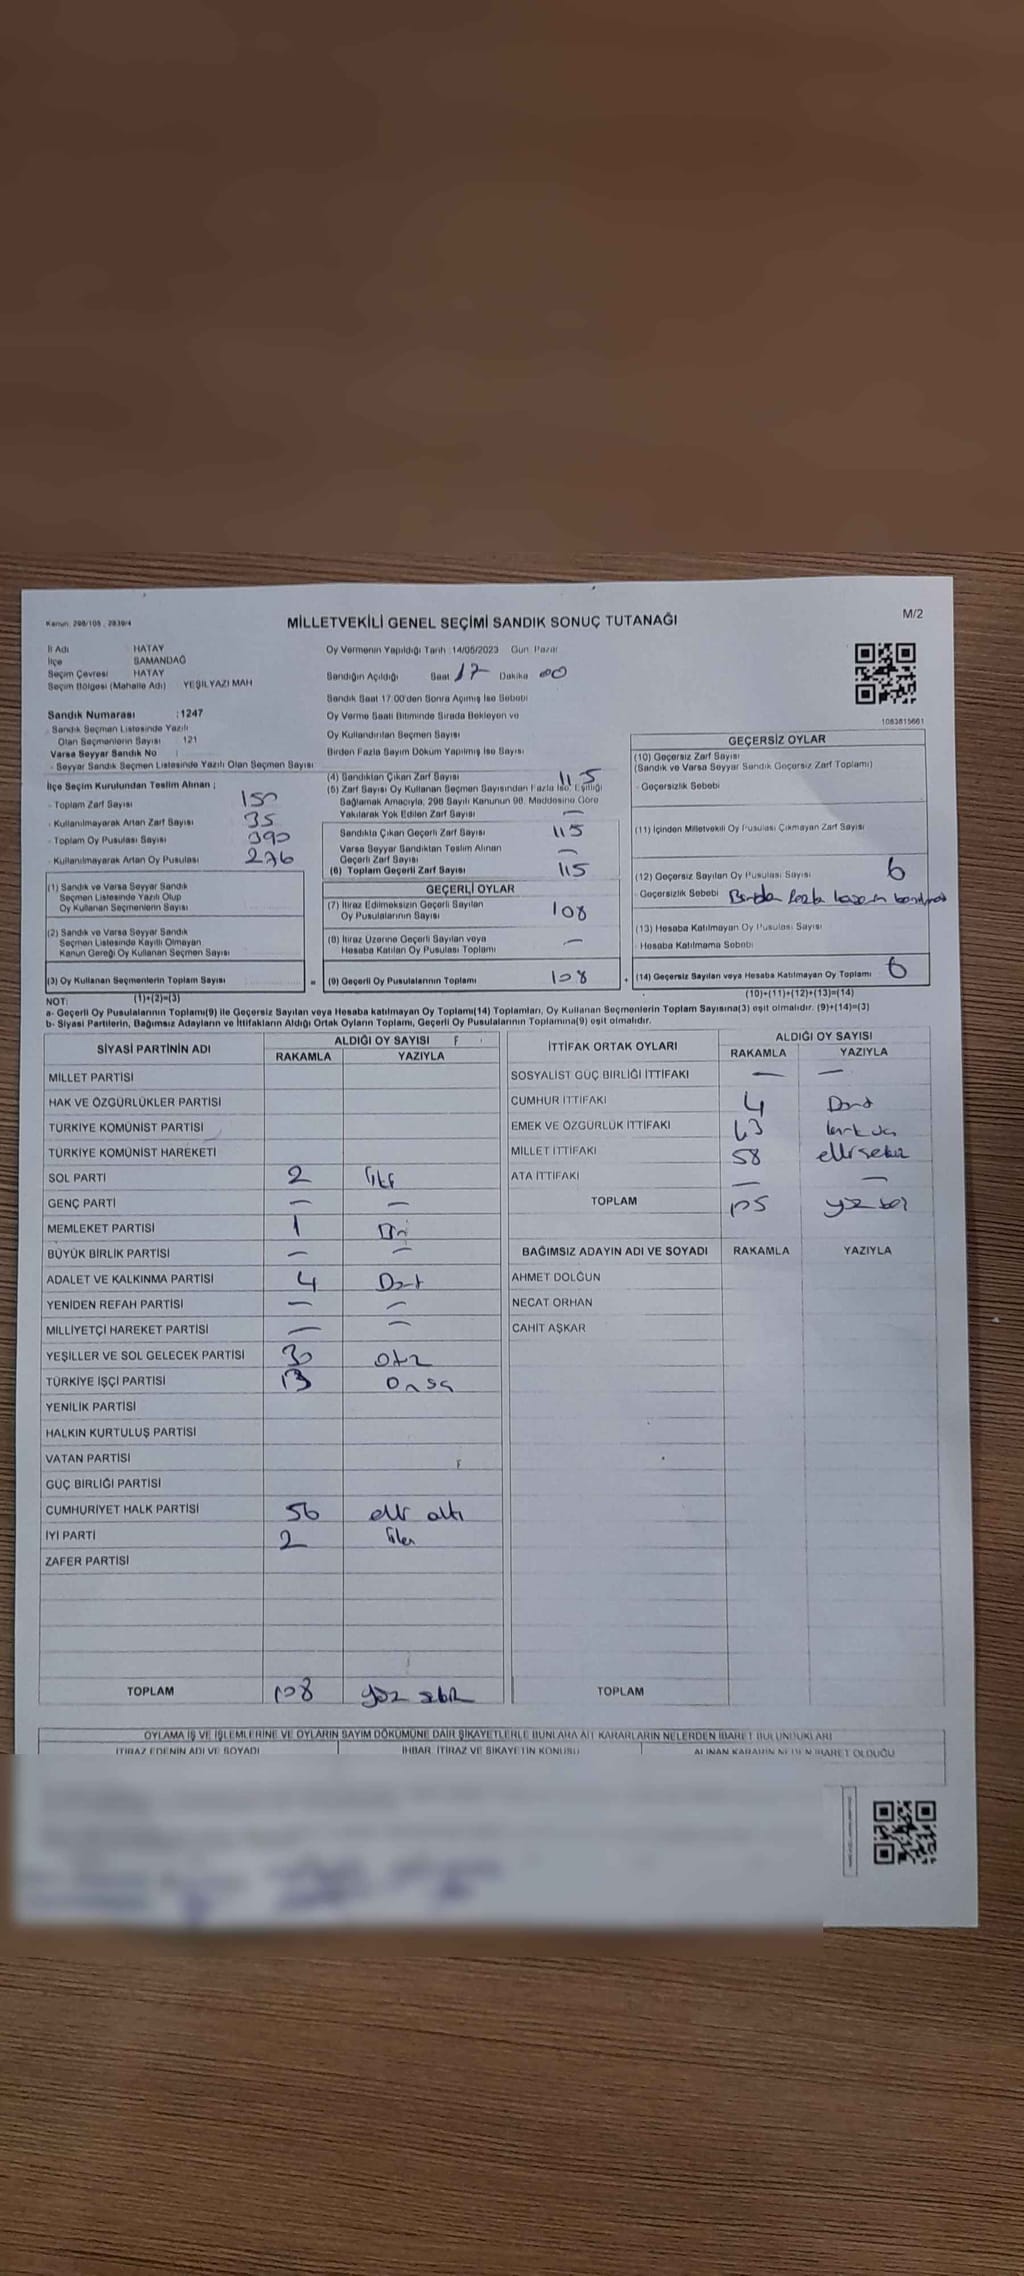 Kanun: 298/105 , 2839/4
MİLLETVEKİLİ GENEL SEÇİMİ SANDIK SONUÇ TUTANAĞI
M/2
İl Adı HATAY
İlçe SAMANDAĞ
Seçim Çevresi HATAY
Seçim Bölgesi (Mahalle Adı) YEŞİLYAZI MAH
Sandık Numarası :1247
- Sandık Seçmen Listesinde Yazılı
Olan Seçmenlerin Sayısı : 121
Varsa Seyyar Sandık No :
- Seyyar Sandık Seçmen Listesinde Yazılı Olan Seçmen Sayısı
İlçe Seçim Kurulundan Teslim Alınan ;
- Toplam Zarf Sayısı 150
- Kullanılmayarak Artan Zarf Sayısı 35
- Toplam Oy Pusulası Sayısı 390
- Kullanılmayarak Artan Oy Pusulası 276
(1) Sandık ve Varsa Seyyar Sandık
Seçmen Listesinde Yazılı Olup
Oy Kullanan Seçmenlerin Sayısı
(2) Sandık ve Varsa Seyyar Sandık
Seçmen Listesinde Kayıtlı Olmayan
Kanun Gereği Oy Kullanan Seçmen Sayısı
(3) Oy Kullanan Seçmenlerin Toplam Sayısı =
(1)+(2)=(3)
Oy Vermenin Yapıldığı Tarih :14/05/2023 Gün: Pazar
Sandığın Açıldığı Saat 17 Dakika 00
Sandık Saat 17:00'den Sonra Açılmış İse Sebebi
Oy Verme Saati Bitiminde Sırada Bekleyen ve
Oy Kullandırılan Seçmen Sayısı
Birden Fazla Sayım Döküm Yapılmış İse Sayısı
(4) Sandıktan Çıkan Zarf Sayısı 115
(5) Zarf Sayısı Oy Kullanan Seçmen Sayısından Fazla İse, Eşitliği
Sağlamak Amacıyla, 298 Sayılı Kanunun 98. Maddesine Göre
Yakılarak Yok Edilen Zarf Sayısı —
Sandıkta Çıkan Geçerli Zarf Sayısı 115
Varsa Seyyar Sandıktan Teslim Alınan
Geçerli Zarf Sayısı —
(6) Toplam Geçerli Zarf Sayısı 115
GEÇERLİ OYLAR
(7) İtiraz Edilmeksizin Geçerli Sayılan
Oy Pusulalarının Sayısı 108
(8) İtiraz Üzerine Geçerli Sayılan veya
Hesaba Katılan Oy Pusulası Toplamı —
(9) Geçerli Oy Pusulalarının Toplamı 108 +
1083815661
GEÇERSİZ OYLAR
(10) Geçersiz Zarf Sayısı
(Sandık ve Varsa Seyyar Sandık Geçersiz Zarf Toplamı)
- Geçersizlik Sebebi
(11) İçinden Milletvekili Oy Pusulası Çıkmayan Zarf Sayısı
(12) Geçersiz Sayılan Oy Pusulası Sayısı 6
- Geçersizlik Sebebi Birden fazla
(13) Hesaba Katılmayan Oy Pusulası Sayısı
- Hesaba Katılmama Sebebi
(14) Geçersiz Sayılan veya Hesaba Katılmayan Oy Toplamı 6
(10)+(11)+(12)+(13)=(14)
NOT:
a- Geçerli Oy Pusulalarının Toplamı(9) ile Geçersiz Sayılan veya Hesaba katılmayan Oy Toplamı(14) Toplamları, Oy Kullanan Seçmenlerin Toplam Sayısına(3) eşit olmalıdır. (9)+(14)=(3)
b- Siyasi Partilerin, Bağımsız Adayların ve İttifakların Aldığı Ortak Oyların Toplamı, Geçerli Oy Pusulalarının Toplamına(9) eşit olmalıdır.
SİYASİ PARTİNİN ADI ALDIĞI OY SAYISI
RAKAMLA YAZIYLA
MİLLET PARTİSİ
HAK VE ÖZGÜRLÜKLER PARTİSİ
TÜRKİYE KOMÜNİST PARTİSİ
TÜRKİYE KOMÜNİST HAREKETİ
SOL PARTİ 2 iki
GENÇ PARTİ — —
MEMLEKET PARTİSİ 1 Bir
BÜYÜK BİRLİK PARTİSİ — —
ADALET VE KALKINMA PARTİSİ 4 Dört
YENİDEN REFAH PARTİSİ — —
MİLLİYETÇİ HAREKET PARTİSİ — —
YEŞİLLER VE SOL GELECEK PARTİSİ 30 otuz
TÜRKİYE İŞÇİ PARTİSİ 13 Onüç
YENİLİK PARTİSİ
HALKIN KURTULUŞ PARTİSİ
VATAN PARTİSİ
GÜÇ BİRLİĞİ PARTİSİ
CUMHURİYET HALK PARTİSİ 56 elli altı
İYİ PARTİ 2 iki
ZAFER PARTİSİ
TOPLAM 108 yüz sekiz
İTTİFAK ORTAK OYLARI ALDIĞI OY SAYISI
RAKAMLA YAZIYLA
SOSYALİST GÜÇ BİRLİĞİ İTTİFAKI — —
CUMHUR İTTİFAKI 4 Dört
EMEK VE ÖZGÜRLÜK İTTİFAKI 43 kırk üç
MİLLET İTTİFAKI 58 elli sekiz
ATA İTTİFAKI — —
TOPLAM 105 yüz beş
BAĞIMSIZ ADAYIN ADI VE SOYADI RAKAMLA YAZIYLA
AHMET DOLĞUN
NECAT ORHAN
CAHİT AŞKAR
TOPLAM
OYLAMA İŞ VE İŞLEMLERİNE VE OYLARIN SAYIM DÖKÜMÜNE DAİR ŞİKAYETLERLE BUNLARA AİT KARARLARIN NELERDEN İBARET BULUNDUKLARI
İTİRAZ EDENİN ADI VE SOYADI İHBAR, İTİRAZ VE ŞİKAYETİN KONUSU ALINAN KARARIN NEDEN İBARET OLDUĞU